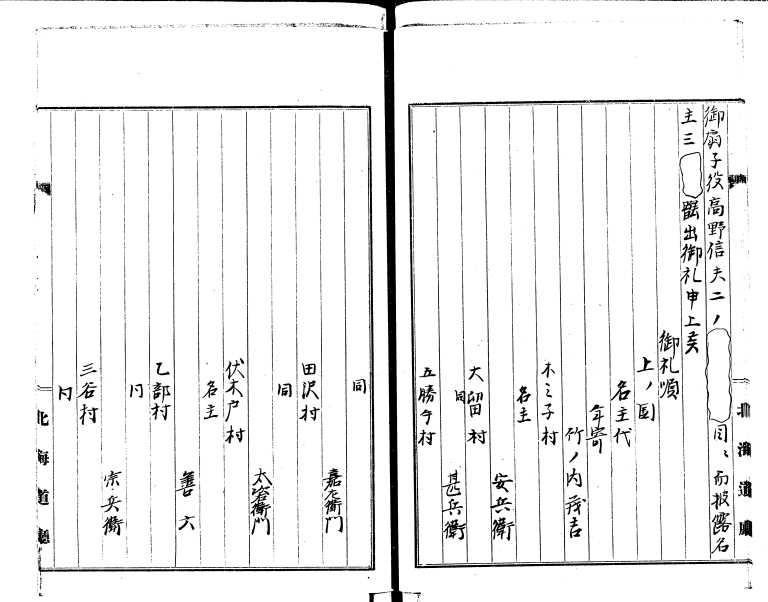 御扇子役高野信夫二ノ
同〻而披露名
主三
罷出御礼申上候
御礼順
上ノ国
名主代
年寄
竹ノ内茂吉
木ノ子村
名主
安兵衛
大留村
同
甚兵衛
五勝手村
同
嘉左衛門
田沢村
同
太治衛門
伏木戸村
名主
善六
乙部村
同
宗兵衛
三谷村
同
北海道廳
北海道廳